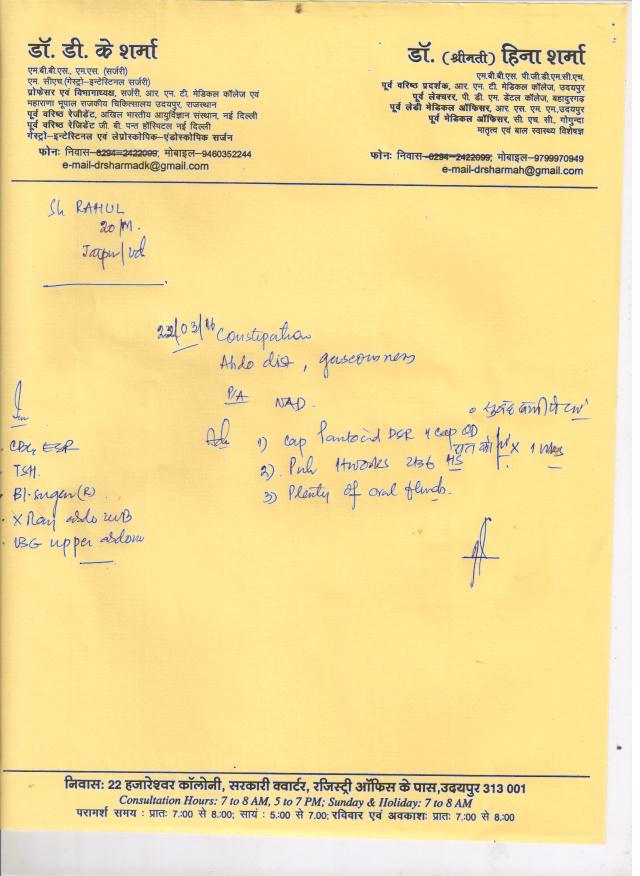 डॉ. डी. के शर्मा
एम.बी.बी.एस., एम.एस. (सर्जरी)
एम. सीएच.(गेस्ट्रो-इन्टेस्टिनल सर्जरी)
प्रोफेसर एवं विभागाध्यक्ष, सर्जरी, आर. एन. टी. मेडिकल कॉलेज एवं
महाराणा भूपाल राजकीय चिकित्सालय उदयपुर, राजस्थान
पूर्व वरिष्ठ रेजीडेंट, अखिल भारतीय आयुर्विज्ञान संस्थान, नई दिल्ली
पूर्व वरिष्ठ रेजिडेंट जी. बी. पन्त हॉस्पिटल नई दिल्ली
गेस्ट्रो-इन्टेस्टिनल एवं लेप्रोस्कोपिक-एंडोस्कोपिक सर्जन
फोनः निवास-0294-2422099, मोबाइल-9460352244
e-mail-drsharmadk@gmail.com
डॉ. (श्रीमती) हिना शर्मा
एम.बी.बी.एस. पी.जी.डी.एम.सी.एच.
पूर्व वरिष्ठ प्रदर्शक, आर. एन. टी. मेडिकल कॉलेज, उदयपुर
पूर्व लेक्चरर, पी. डी. एम. डेंटल कॉलेज, बहादुरगढ़
पूर्व लेडी मेडिकल ऑफिसर, आर. एस. एम. एम.,उदयपुर
पूर्व मेडिकल ऑफिसर, सी. एच. सी., गोगुन्दा
मातृत्व एवं बाल स्वास्थ्य विशेषज्ञ
फोनः निवास-0294-2422099, मोबाइल-9799970949
e-mail-drsharmah@gmail.com
Sh RAHUL
20/M.
22/03/16 Constipation
Abdo dist, gaseousness
P/A NAD.
Adv 1) Cap Pantocid DSR 1 cap OD
2). HS
रात को
3) Plenty of oral fluids.
CBC, ESR
TSH.
Bl. sugar (R)
X Ray abdo
USG upper abdomen
निवास: 22 हजारेश्वर कॉलोनी, सरकारी क्वार्टर, रजिस्ट्री ऑफिस के पास,उदयपुर 313 001
Consultation Hours: 7 to 8 AM, 5 to 7 PM; Sunday & Holiday: 7 to 8 AM
परामर्श समय : प्रातः 7.00 से 8.00; सायं : 5.00 से 7.00; रविवार एवं अवकाशः प्रातः 7.00 से 8.00